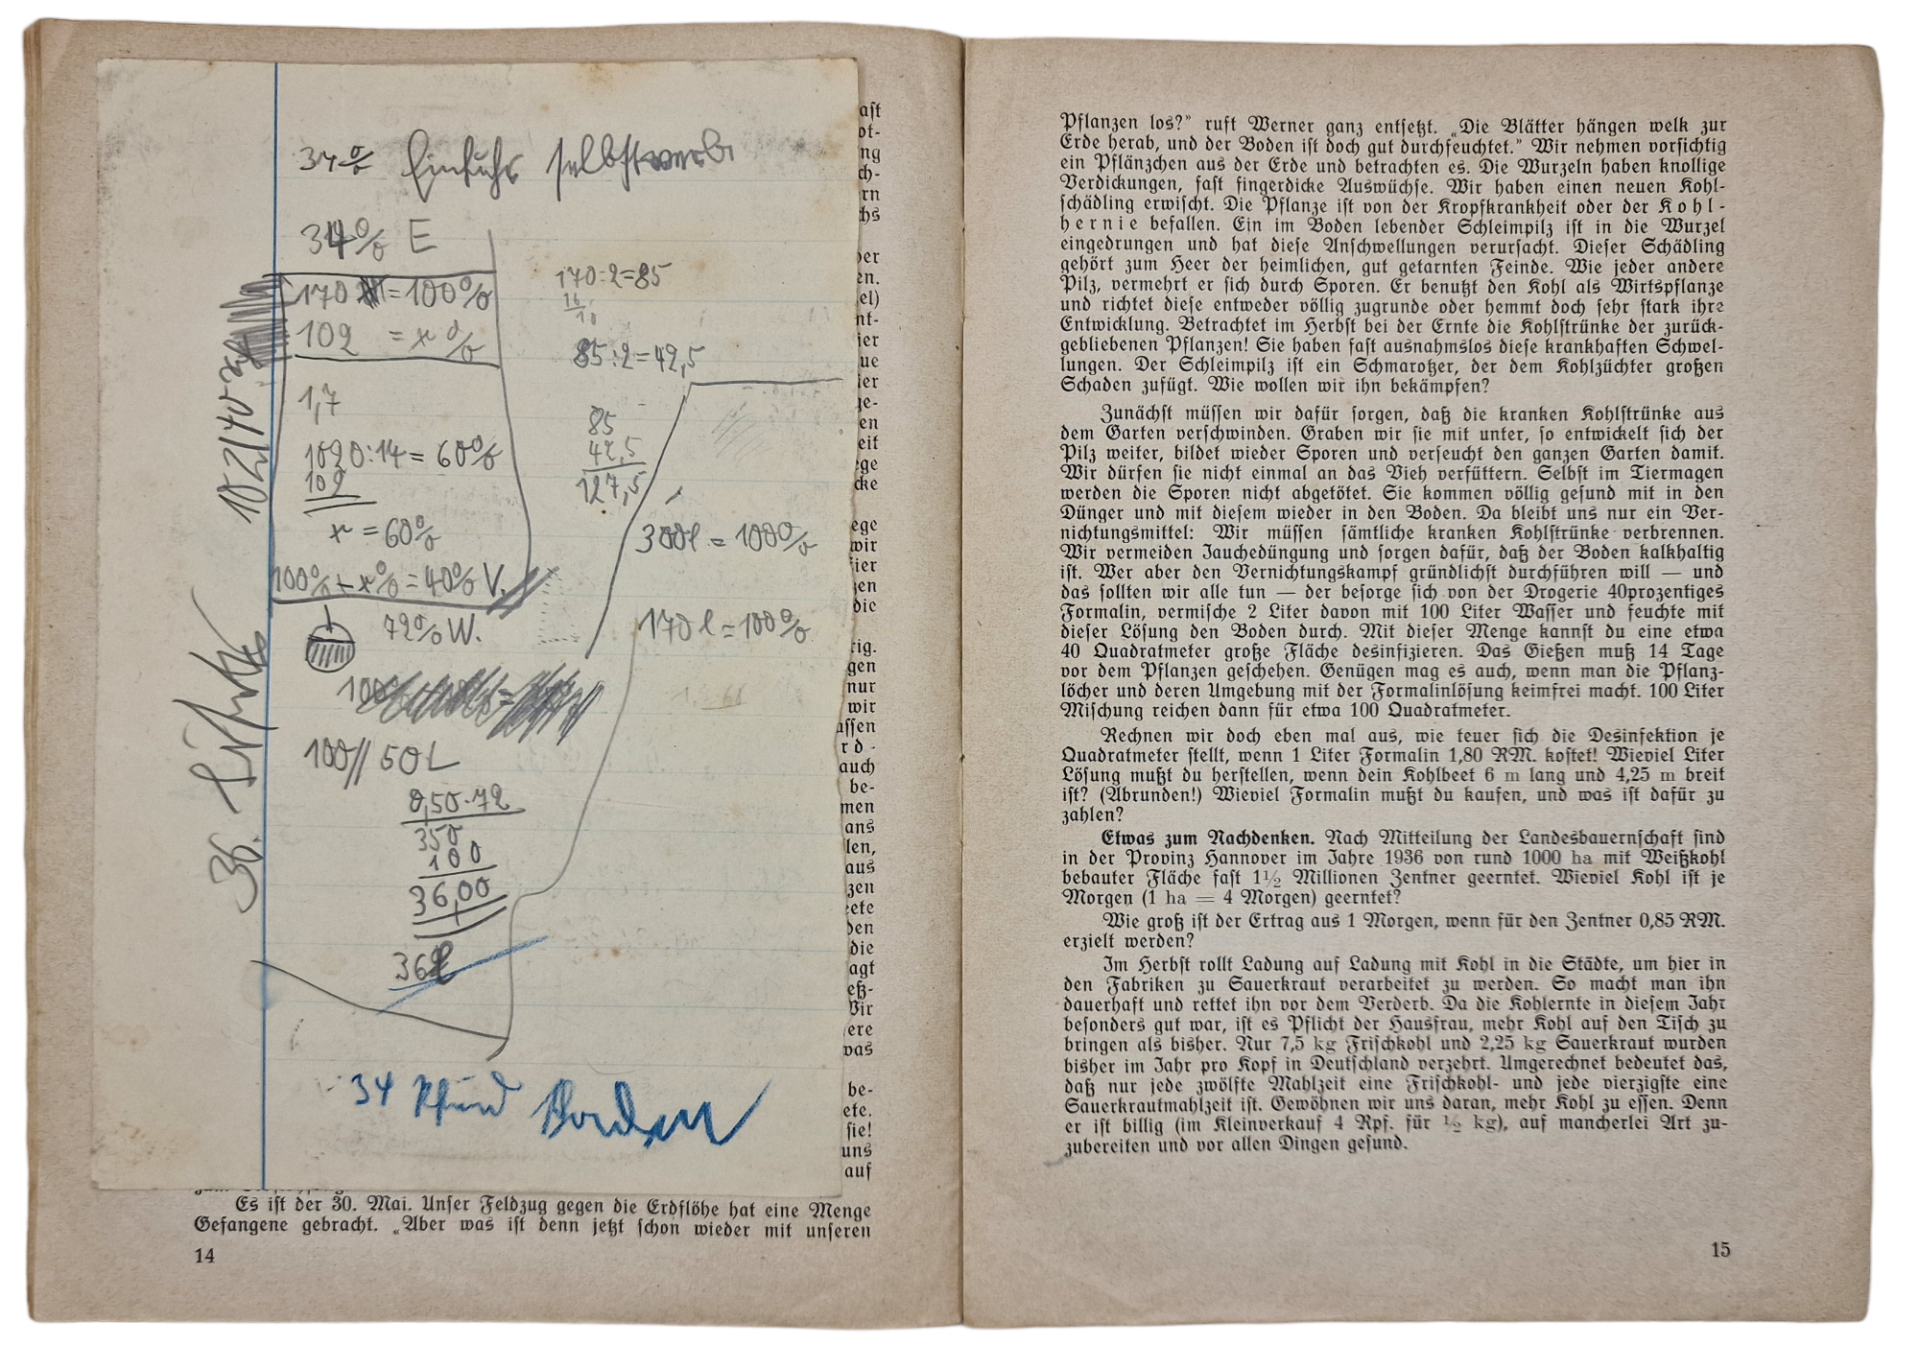 34% Einfuhr selbst
34% E
170 = 100%
102 = x %
1,7
1020:14 = 60%
102
x = 60%
100% - x% = 40% V.
72% W.
100
100// 50 L
0,50·72
350
100
36,00
36l
34 Pfund Boden
170:2=85
16
10
85:2=42,5
85
42,5
127,5
300l = 100%
170 l = 100%
102/40
36.
aſt
ot-
ng
ch-
rn
chs
er
en.
el)
nt-
ier
ue
ier
ge-
en
eit
ege
cke
ege
wir
ier
zen
die
rig.
gen
nur
wir
aſſen
rd-
auch
be-
men
ans
len,
aus
zen
ete
den
die
agt
eß-
Wir
ere
was
be-
ete.
ſie!
uns
auf
Es iſt der 30. Mai. Unſer Feldzug gegen die Erdflöhe hat eine Menge
Gefangene gebracht. „Aber was iſt denn jetzt ſchon wieder mit unſeren
14
Pflanzen los?“ ruft Werner ganz entſetzt. „Die Blätter hängen welk zur
Erde herab, und der Boden iſt doch gut durchfeuchtet.“ Wir nehmen vorſichtig
ein Pflänzchen aus der Erde und betrachten es. Die Wurzeln haben knollige
Verdickungen, faſt fingerdicke Auswüchſe. Wir haben einen neuen Kohl-
ſchädling erwiſcht. Die Pflanze iſt von der Kropfkrankheit oder der Kohl-
hernie befallen. Ein im Boden lebender Schleimpilz iſt in die Wurzel
eingedrungen und hat dieſe Anſchwellungen verurſacht. Dieſer Schädling
gehört zum Heer der heimlichen, gut getarnten Feinde. Wie jeder andere
Pilz, vermehrt er ſich durch Sporen. Er benutzt den Kohl als Wirtspflanze
und richtet dieſe entweder völlig zugrunde oder hemmt doch ſehr ſtark ihre
Entwicklung. Betrachtet im Herbſt bei der Ernte die Kohlſtrünke der zurück-
gebliebenen Pflanzen! Sie haben faſt ausnahmslos dieſe krankhaften Schwel-
lungen. Der Schleimpilz iſt ein Schmarotzer, der dem Kohlzüchter großen
Schaden zufügt. Wie wollen wir ihn bekämpfen?
Zunächſt müſſen wir dafür ſorgen, daß die kranken Kohlſtrünke aus
dem Garten verſchwinden. Graben wir ſie mit unter, ſo entwickelt ſich der
Pilz weiter, bildet wieder Sporen und verſeucht den ganzen Garten damit.
Wir dürfen ſie nicht einmal an das Vieh verfüttern. Selbſt im Tiermagen
werden die Sporen nicht abgetötet. Sie kommen völlig geſund mit in den
Dünger und mit dieſem wieder in den Boden. Da bleibt uns nur ein Ver-
nichtungsmittel: Wir müſſen ſämtliche kranken Kohlſtrünke verbrennen.
Wir vermeiden Jauchedüngung und ſorgen dafür, daß der Boden kalkhaltig
iſt. Wer aber den Vernichtungskampf gründlichſt durchführen will — und
das ſollten wir alle tun — der beſorge ſich von der Drogerie 40prozentiges
Formalin, vermiſche 2 Liter davon mit 100 Liter Waſſer und feuchte mit
dieſer Löſung den Boden durch. Mit dieſer Menge kannſt du eine etwa
40 Quadratmeter große Fläche desinfizieren. Das Gießen muß 14 Tage
vor dem Pflanzen geſchehen. Genügen mag es auch, wenn man die Pflanz-
löcher und deren Umgebung mit der Formalinlöſung keimfrei macht. 100 Liter
Miſchung reichen dann für etwa 100 Quadratmeter.
Rechnen wir doch eben mal aus, wie teuer ſich die Desinfektion je
Quadratmeter ſtellt, wenn 1 Liter Formalin 1,80 RM. koſtet! Wieviel Liter
Löſung mußt du herſtellen, wenn dein Kohlbeet 6 m lang und 4,25 m breit
iſt? (Abrunden!) Wieviel Formalin mußt du kaufen, und was iſt dafür zu
zahlen?
Etwas zum Nachdenken. Nach Mitteilung der Landesbauernſchaft ſind
in der Provinz Hannover im Jahre 1936 von rund 1000 ha mit Weißkohl
bebauter Fläche faſt 1½ Millionen Zentner geerntet. Wieviel Kohl iſt je
Morgen (1 ha = 4 Morgen) geerntet?
Wie groß iſt der Ertrag aus 1 Morgen, wenn für den Zentner 0,85 RM.
erzielt werden?
Im Herbſt rollt Ladung auf Ladung mit Kohl in die Städte, um hier in
den Fabriken zu Sauerkraut verarbeitet zu werden. So macht man ihn
dauerhaft und rettet ihn vor dem Verderb. Da die Kohlernte in dieſem Jahr
beſonders gut war, iſt es Pflicht der Hausfrau, mehr Kohl auf den Tiſch zu
bringen als bisher. Nur 7,5 kg Friſchkohl und 2,25 kg Sauerkraut wurden
bisher im Jahr pro Kopf in Deutſchland verzehrt. Umgerechnet bedeutet das,
daß nur jede zwölfte Mahlzeit eine Friſchkohl- und jede vierzigſte eine
Sauerkrautmahlzeit iſt. Gewöhnen wir uns daran, mehr Kohl zu eſſen. Denn
er iſt billig (im Kleinverkauf 4 Rpf. für ½ kg), auf mancherlei Art zu-
zubereiten und vor allen Dingen geſund.
15